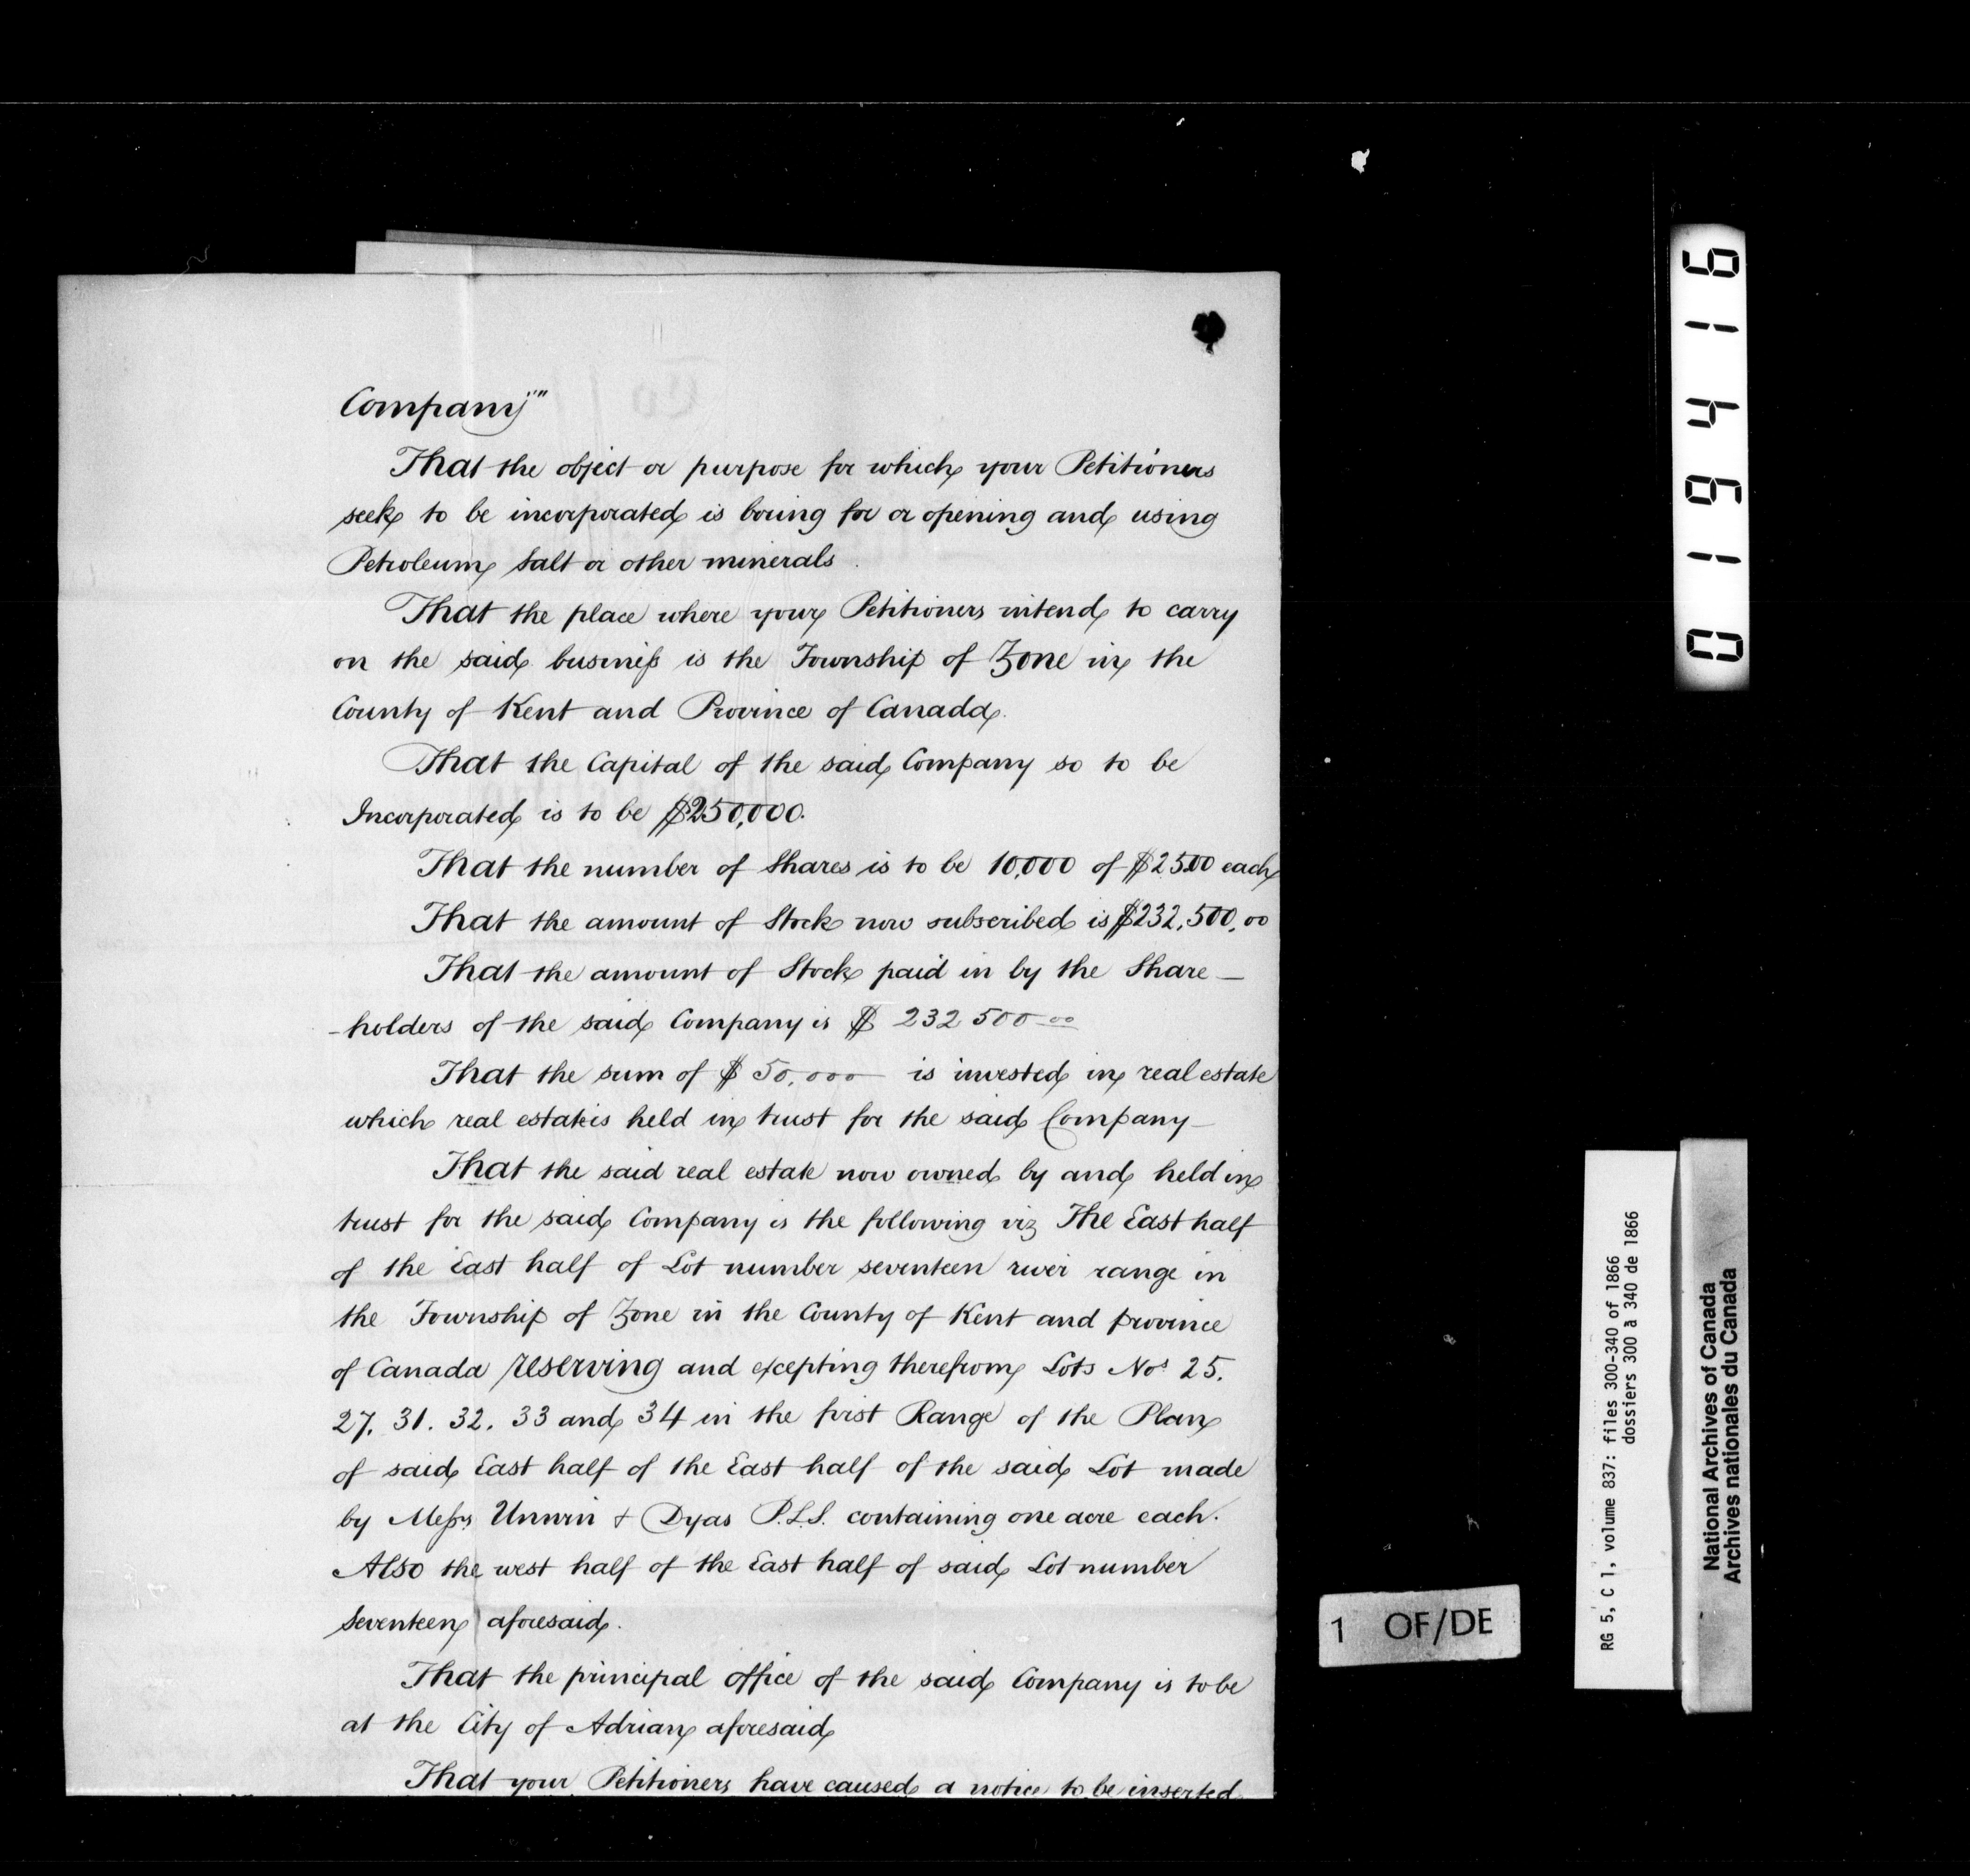 Company"
That the object or purpose for which your Petitioners
seek to be incorporated is boring for or opening and using
Petroleum Salt or other minerals.
That the place where your Petitioners intend to carry
on the said business is the Township of Zone in the
County of Kent and Province of Canada.
That the Capital of the said Company so to be
Incorporated is to be $250,000.
That the number of Shares is to be 10,000 of $25.00 each
That the amount of Stock now subscribed is $232,500.00
That the amount of Stock paid in by the Share-
-holders of the said Company is $ 232 500 00
That the sum of $ 50,000 is invested in real estate
which real estate is held in trust for the said Company-
That the said real estate now owned by and held in
trust for the said Company is the following viz The East half
of the East half of Lot number seventeen river range in
the Township of Zone in the County of Kent and province
of Canada reserving and excepting therefrom Lots Nos 25.
27. 31. 32. 33 and 34 in the first Range of the Plan
of said East half of the East half of the said Lot made
by Messrs Unwin & Dyas P.L.S. containing one acre each.
Also the west half of the East half of said Lot number
Seventeen aforesaid.
That the principal office of the said Company is to be
at the City of Adrian aforesaid
That your Petitioners have caused a notice to be inserted
0 1 9 4 1 6
RG 5, C 1, volume 837: files 300-340 of 1866
dossiers 300 à 340 de 1866
National Archives of Canada
Archives nationales du Canada
1 OF/DE